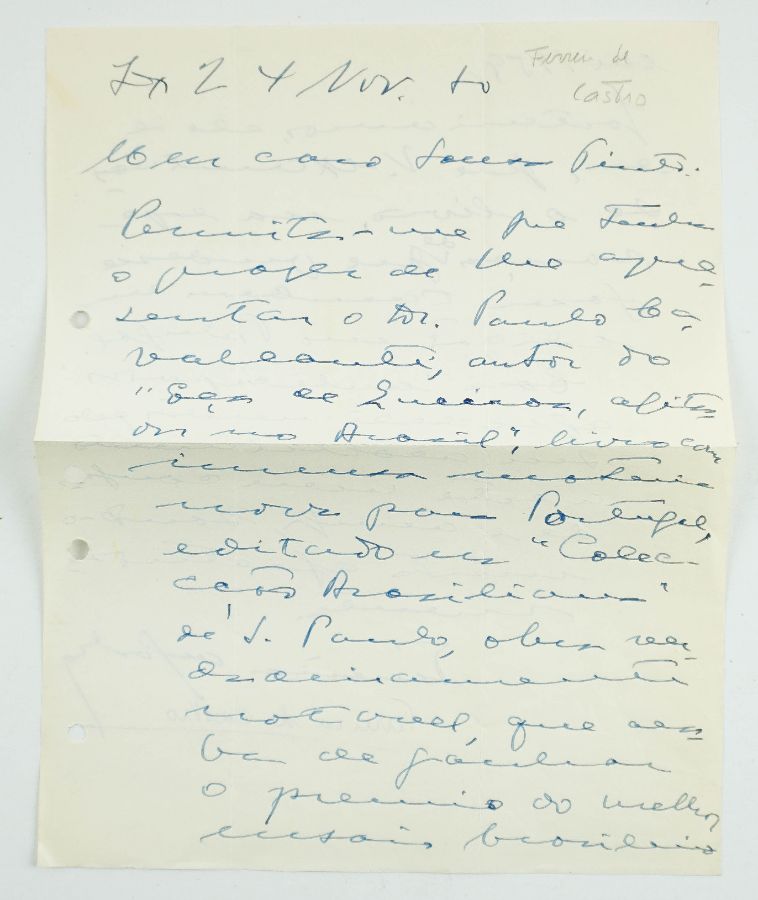 Lx 24 Nov.
Ferreira de
Castro
Meu caro Souza Pinto.
Permita-me que tenha
o prazer de lhe apre-
sentar o Dr. Paulo Ca-
valcanti, autor do
"Eça de Queiroz, agita-
dor no Brasil", livro com
imensa matéria
nova para Portugal,
editado na "Colec-
ção Brasiliana"
de S. Paulo, obra ver-
dadeiramente
notavel, que aca-
ba de ganhar
o premio do melhor
ensaio brasileiro